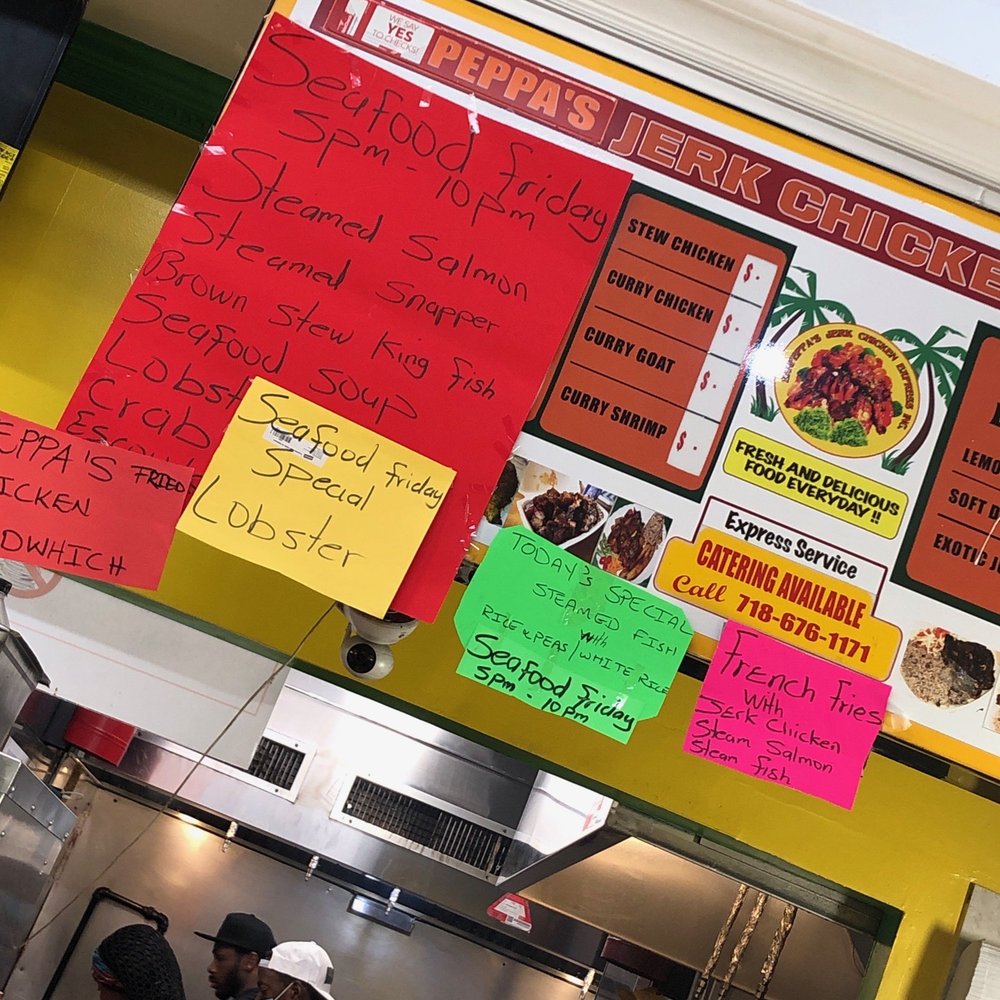 WE SAY
YES
TO CHECKS!
PEPPA'S
JERK CHICKE
Seafood friday
5pm - 10pm
Steamed Salmon
Steamed Snapper
Brown Stew King fish
Seafood Soup
Lobst
Crab
EPPA'S FRIED
ICKEN
DWHICH
Seafood friday
Special
Lobster
STEW CHICKEN $.
CURRY CHICKEN $.
CURRY GOAT $.
CURRY SHRIMP $.
PEPPA'S JERK CHICKEN EXPRESS INC
FRESH AND DELICIOUS
FOOD EVERYDAY !!
Express Service
CATERING AVAILABLE
Call 718-676-1171
LEMO
SOFT D
EXOTIC J
TODAY'S SPECIAL
STEAMED FISH
With
RICE & PEAS / WHITE RICE
Seafood friday
5pm - 10pm
french fries
With
Jerk Chicken
Steam Salmon
Steam fish